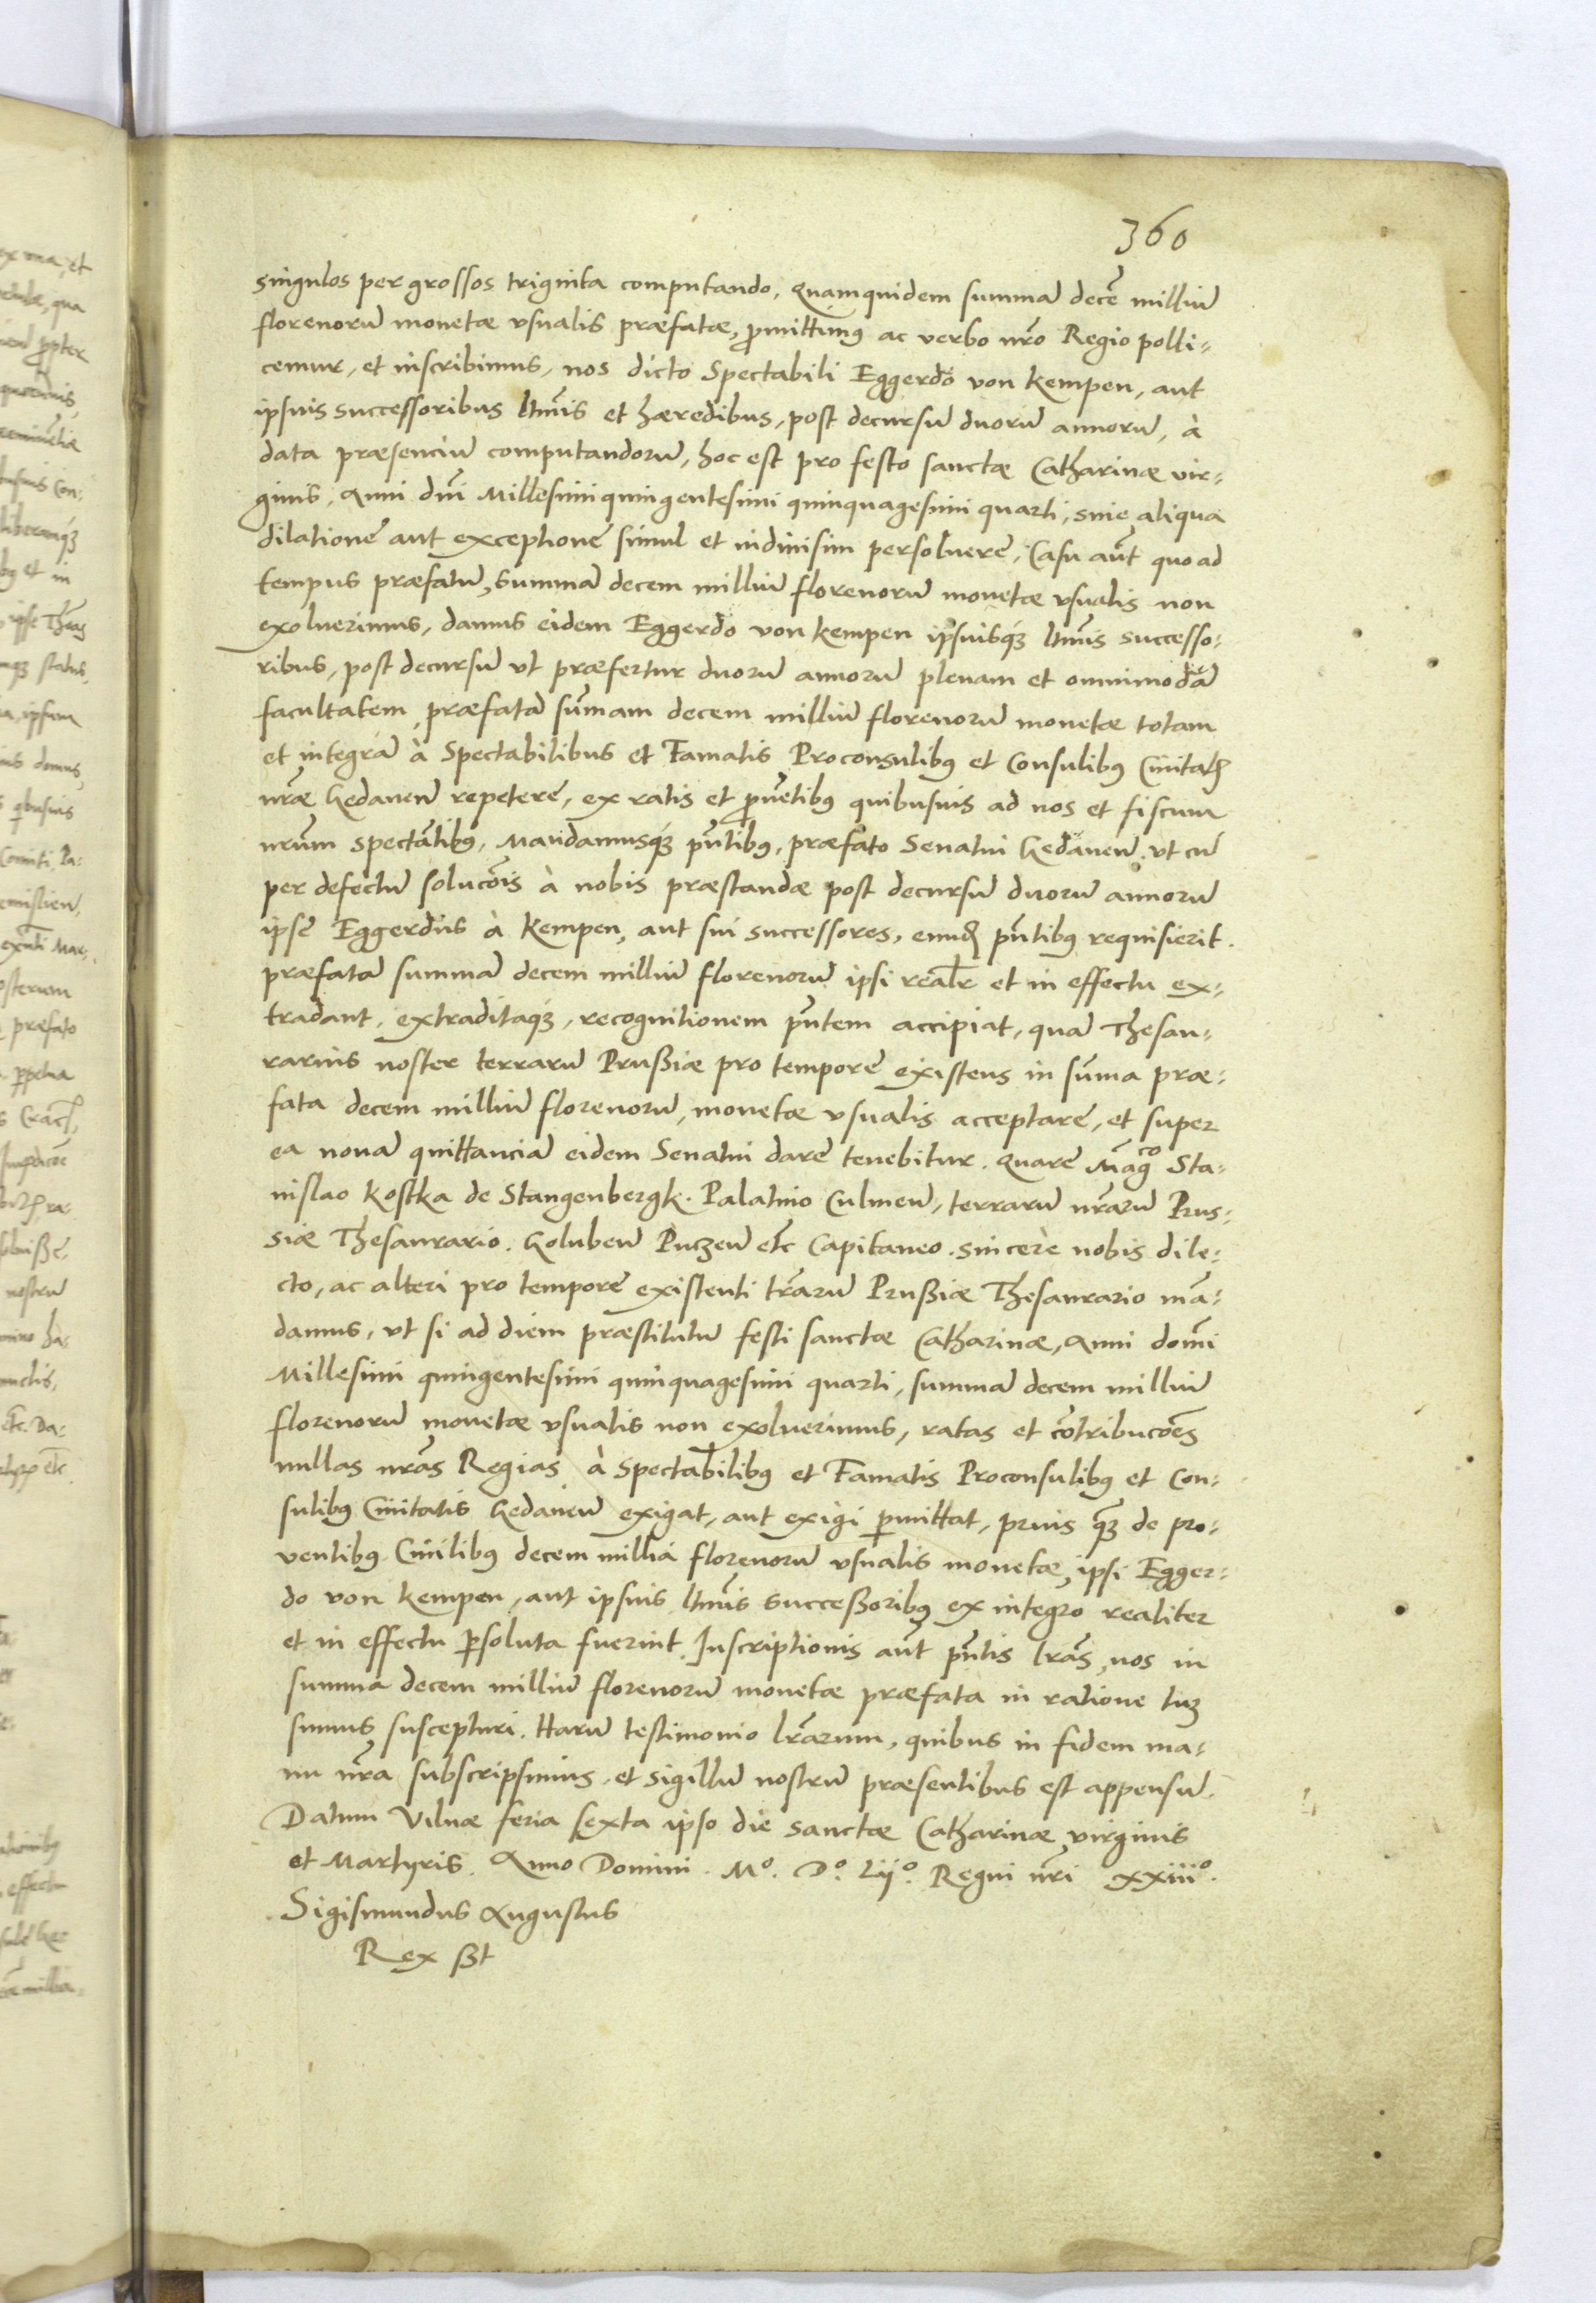 360
singulos per grossos triginta computando. Quamquidem summã decẽ milliũ
florenorũ monetæ vsualis præfatæ, ꝓmittimꝰ ac verbo nrõ Regio polli-
cemur, et inscribimus, nos dicto Spectabili Eggerdo von Kempen, aut
ipsius successoribus ltĩmis et hæredibus, post decursũ duorũ annorũ, à
data præsenciũ computandorũ, hoc est pro festo sanctæ Catharinæ vir-
ginis, Anni dñi Millesimi quingentesimi quinquagesimi quarti, sine aliqua
dilatione aut exceptione simul et indiuisim persoluere, Casu aũt quo ad
tempus præfatũ, summã decem milliũ florenorũ monetæ vsualis non
exoluerimus, damus eidem Eggerdo von Kempen ipsiusqꝫ ltĩmis successo-
ribus, post decursũ vt præfertur duorũ annorũ plenam et omnimodã
facultatem, præfatã sũmam decem milliũ florenorũ monetæ totam
et integrã à Spectabilibus et Famatis Proconsulibꝰ et Consulibꝰ Ciuitatꝭ
nræ̃ Gedaneñ repetere, ex ratis et ꝓuẽtibꝰ quibusuis ad nos et fiscum
nrũm spectãtibꝰ, Mandamusqꝫ pñtibꝰ, præfato Senatui Gedaneñ. vt cũ
per defectũ soluc̃ois à nobis præstandæ post decursũ duorũ annorũ
ipse Eggerdus à Kempen, aut sui successores, eundẽ pñtibꝰ requisierit.
præfatã summã decem milliũ florenorũ ipsi realr̃ et in effectu ex-
tradant, extraditaqꝫ, recognitionem pñtem accipiat, quã Thesau-
rarius noster terrarũ Prußiæ pro tempore existens in sũma præ-
fata decem milliũ florenorũ, monetæ vsualis acceptare, et super
ea nouã quittanciã eidem Senatui dare tenebitur. Quare Mãgco Sta-
nislao Kostka de Stangenbergk. Palatino Culmeñ, terrarũ nrãrũ Prus-
siæ Thesaurario. Golubeñ Puczeñ etc̃ Capitaneo. sincere nobis dile-
cto, ac alteri pro tempore existenti trãrũ Prußiæ Thesaurario mã-
damus, vt si ad diem præstitutũ festi sanctæ Catharinæ, Anni domĩ
Millesimi quingentesimi quinquagesimi quarti, summã decem milliũ
florenorũ monetæ vsualis non exoluerimus, ratas et cõtribucõẽs
nullas nrãs Regias à Spectabilibꝰ et Famatis Proconsulibꝰ et Con-
sulibꝰ Ciuitatis Gedaneñ exigat, aut exigi ꝑmittat, prius qꝫ̃ de pro-
uentibꝰ Ciuilibꝰ decem millia florenorũ vsualis monetæ, ipsi Egger-
do von Kempen, aut ipsius ltĩmis succeßoribꝰ ex integro realiter
et in effectu ꝑsoluta fuerint. Inscriptionis aũt pñtis lrãs, nos in
summa decem milliũ florenorũ monetæ præfata in ratione tuꝫ
sumus suscepturi. Harũ testimonio lrãrum, quibus in fidem ma-
nu nr̃a subscripsimus, et sigillũ nostrũ præsentibus est appensũ.
Datum Vilnæ feria sexta ipso die sanctæ Catharinæ virginis
et Martyris. Anno Domini. Mº. Dº. Lijº. Regni nr̃i xxiiiº.
Sigismundus Augustus
Rex ßt